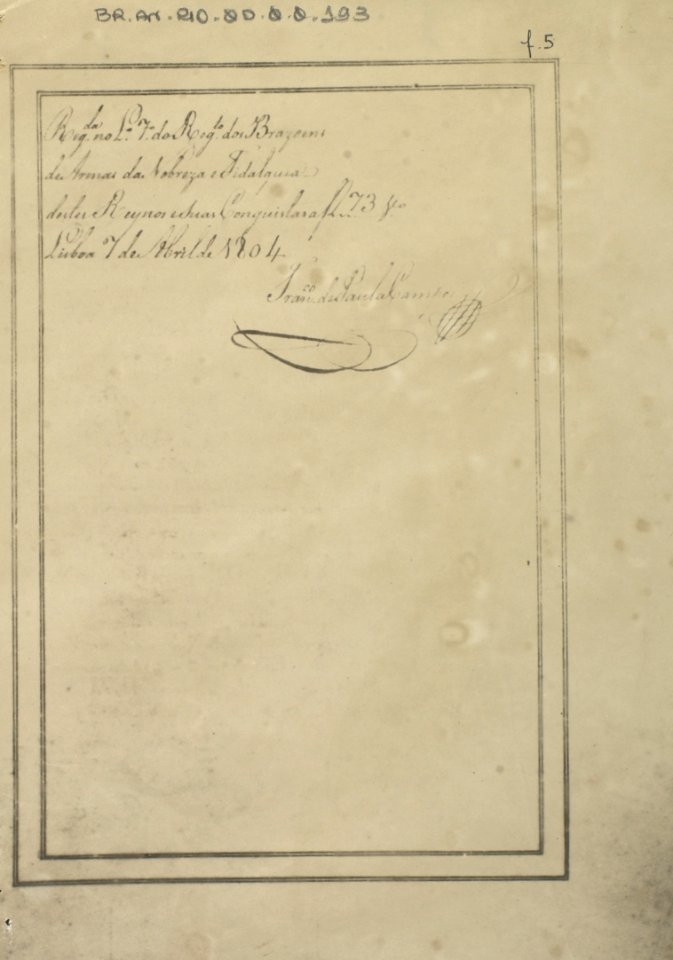 BR.AN.RIO.0D.0.0.193
f.5
Reg.da no L.o 7.o do Reg.to dos Brazoens
de Armas da Nobreza e Fidalguia
destes Reynos e suas Conquistas a f. 73 v.o
Lisboa 7 de Abril de 1804
Fran.co de Paula Campos